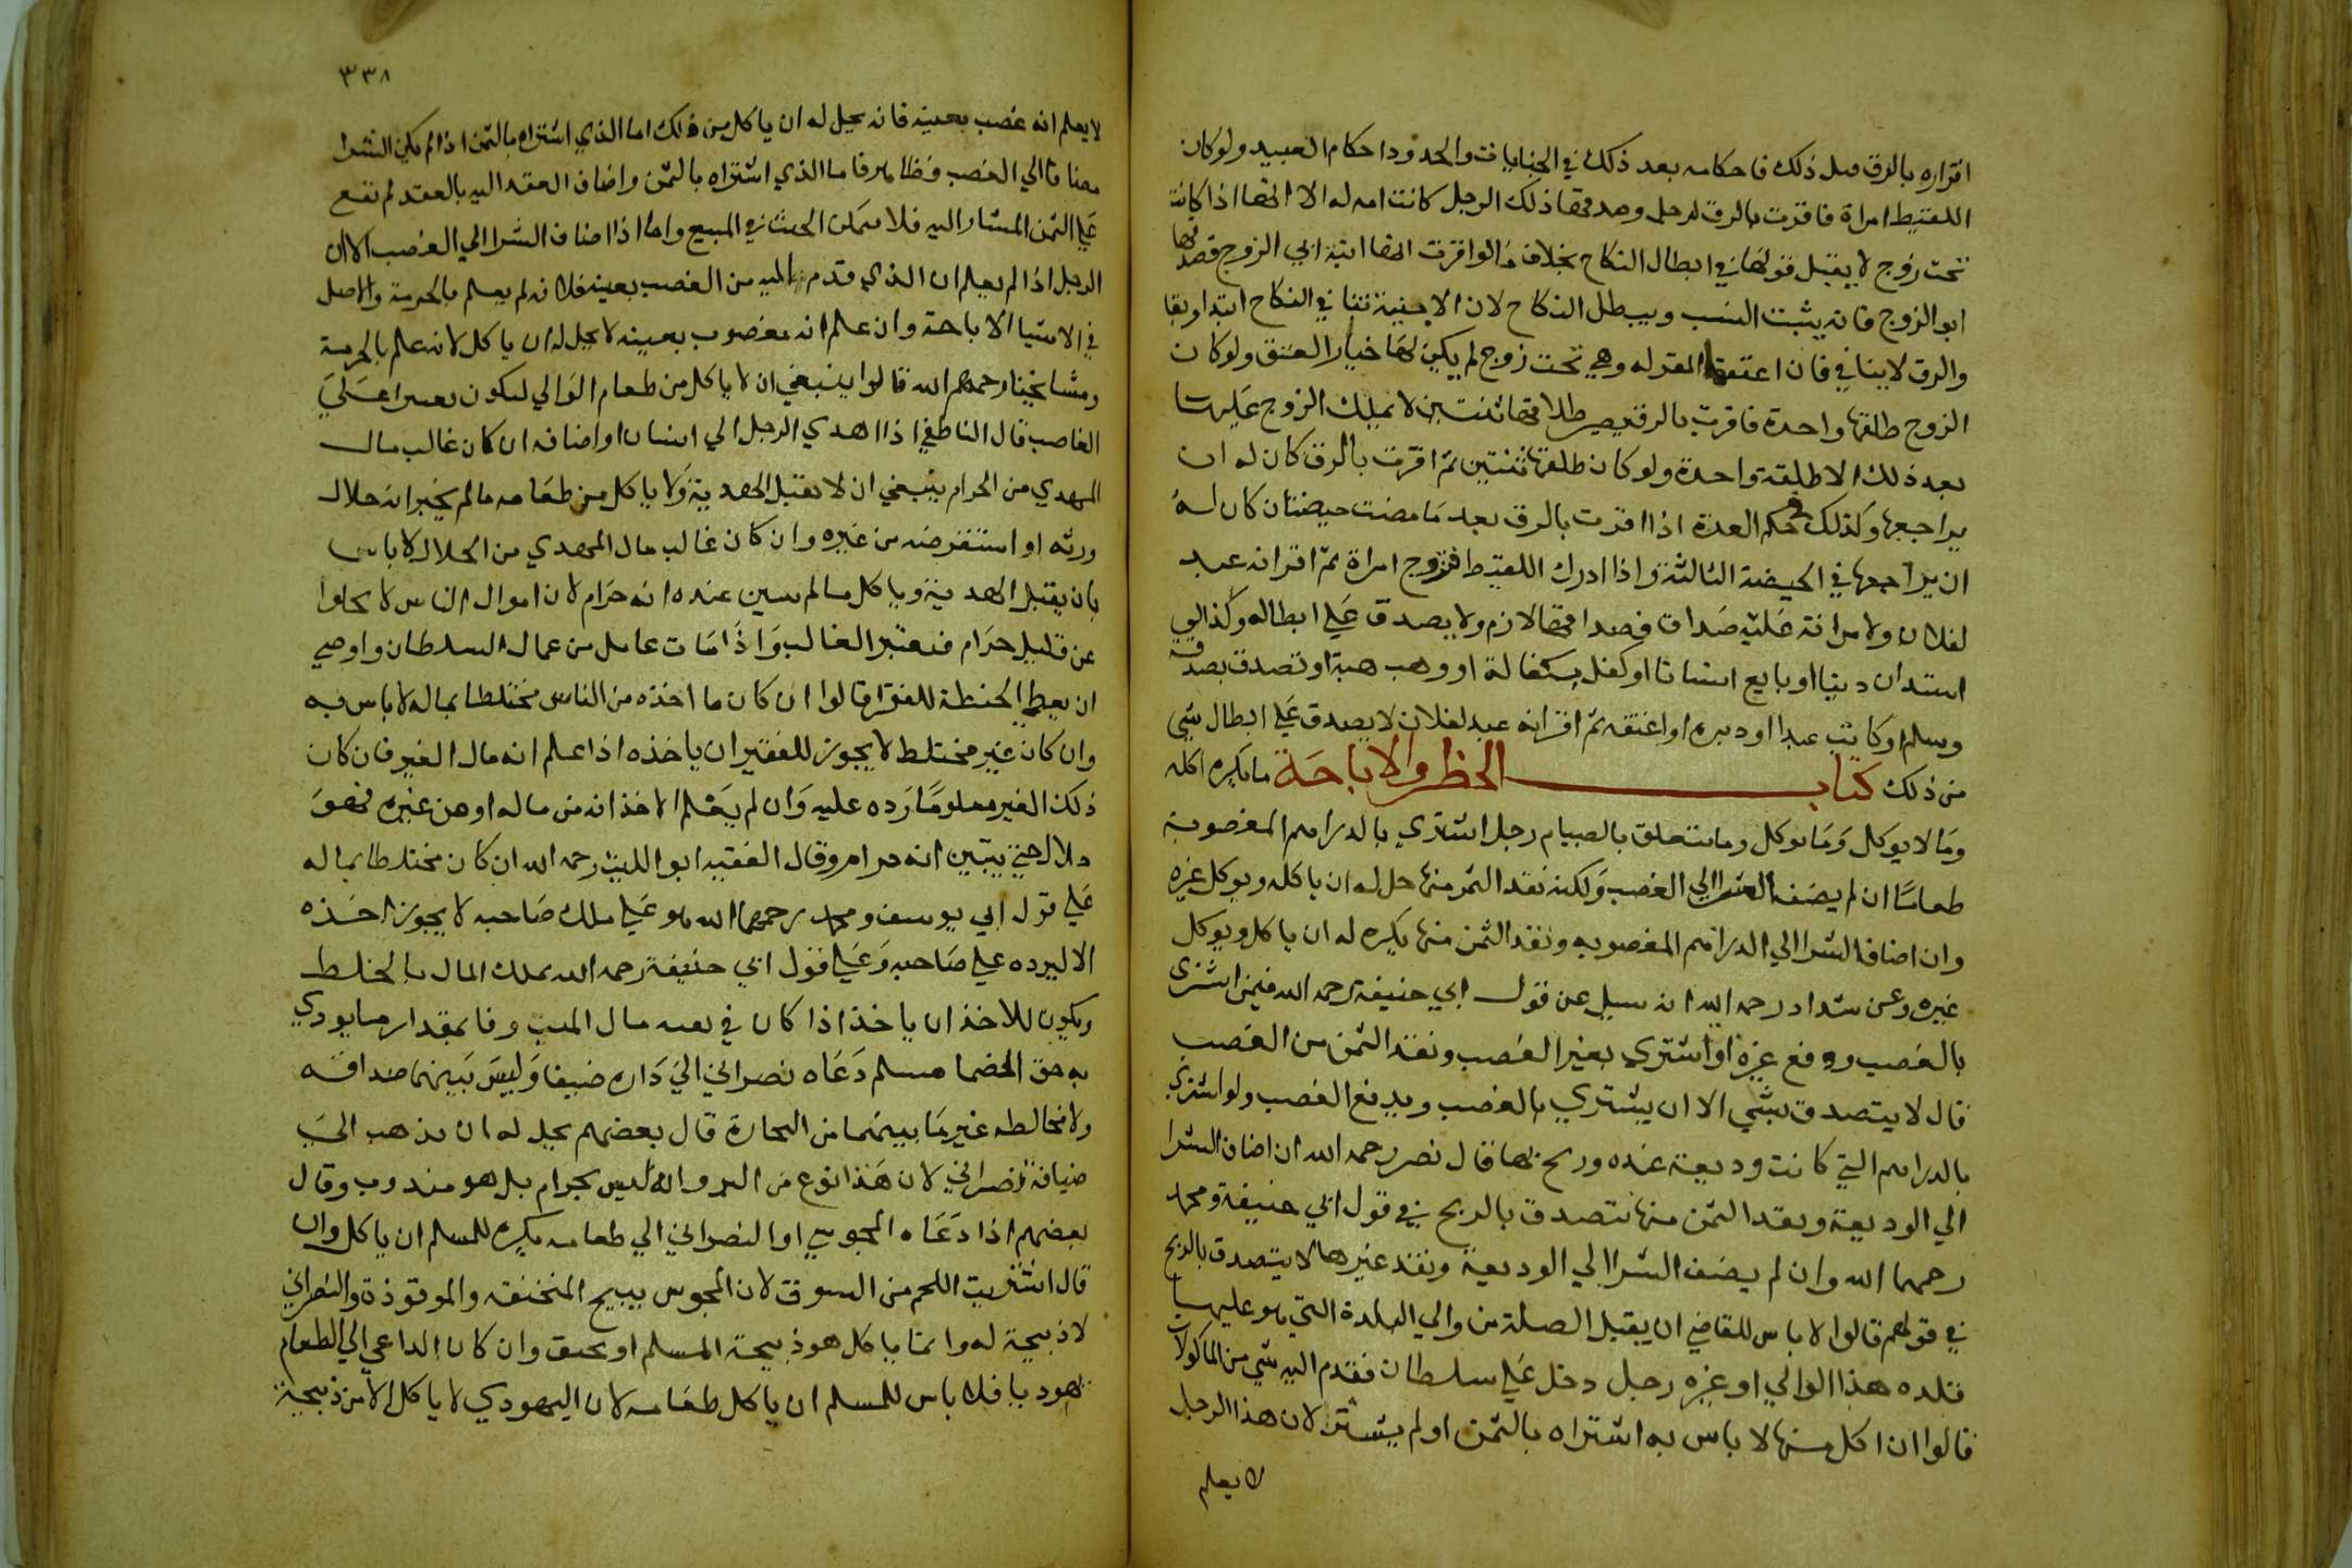 اقراره بالرق قبل ذلك فاحكامه بعد ذلك في الجنايات والحدود احكام العبيد ولو كان
اللقيط امراة فاقرت بالرق لرجل وصدقها ذلك الرجل كانت امه له الا انها اذا كانت
تحت زوج لا يقبل قولها في ابطال النكاح بخلاف ما لو اقرت انها ابنة ابي الزوج فصدقها
ابو الزوج فانه يثبت النسب ويبطل النكاح لان الاختية تنافي النكاح ابتدا وبقا
والرق لا ينافي فان اعتقها المقر له وهي تحت زوج لم يكن لها خيار العتق ولو كان
الزوج طلقها واحدة فاقرت بالرق يصير طلاقها ثنتين لا يملك الزوج عليها
بعد ذلك الا طلقة واحدة ولو كان طلقها ثنتين ثم اقرت بالرق كان له ان
يراجعها وكذلك في حكم العدة اذا اقرت بالرق بعد ما مضت حيضتان كان له
ان يراجعها في الحيضة الثالثة واذا ادرك اللقيط فتزوج امراة ثم اقر انه عبد
لفلان ولامراته عليه صداق فصداقها لازم ولا يصدق علي ابطاله وكذا لو
استدان دينا او بايع انسانا او كفل بكفالة او وهب هبة او تصدق بصدقة
وسلم او كاتب عبدا او دبره او اعتقه ثم اقر انه عبد لفلان لا يصدق علي ابطال شي
من ذلك كتاب الحظر والاباحة ما يكره اكله
وما لا يوكل وما يوكل وما يتعلق بالصيام رجل اشتري بالدراهم المغصوبة
طعاما ان لم يضف الشرا الي الغصب ولكنه نقد الثمن منها حل له ان ياكله ويوكل غيره
وان اضاف الشرا الي الدراهم المغصوبه ونقد الثمن منها يكره له ان ياكل ويوكل
غيره وعن شداد رحمه الله انه سيل عن قول ابي حنيفة رحمه الله فيمن اشتري
بالغصب ودفع غيره او اشتري بغير الغصب ونقد الثمن من الغصب
قال لا يتصدق بشي الا ان يشتري بالغصب ويدفع الغصب ولو اشتري
بالدراهم التي كانت وديعة عنده وربح بها قال نصر رحمه الله ان اضاف الشرا
الي الوديعة ونقد الثمن منها يتصدق بالربح في قول ابي حنيفة ومحمد
رحمهما الله وان لم يضف الشرا الي الوديعة ونقد غيرها لا يتصدق بالربح
في قولهم قالوا لا باس للقاضي ان يقبل الصلة من والي البلدة التي هو عليها
قلده هذا الوالي او غيره رجل دخل علي سلطان فقدم اليه شي من الماكولات
قالوا ان اكل منها لا باس به اشتراه بالثمن او لم يشتر لان هذا الرجل
لا يعلم
٣٣٨
لا يعلم انه غصب بعينه فانه يحل له ان ياكل من ذلك اما الذي اشتراه بالثمن اذا لم يكن الشرا
مضافا الي الغصب فظاهر فاما الذي اشتراه بالثمن واضاف العقد اليه بالعقد لم تقع
علي الثمن المشار اليه فلا يتمكن الخبث في المبيع واما اذا اضاف الشرا الي الغصب الا ان
الرجل اذا لم يعلم ان الذي قدم اليه من الغصب بعينه فلانه لم يعلم بالحرمة والاصل
في الاشيا الاباحة وان علم انه مغصوب بعينه لا يحل له ان ياكل لانه علم بالحرمة
ومشايخنا رحمهم الله قالوا ينبغي ان لا ياكل من طعام الوالي ليكون تعسيرا علي
الغاصب قال الناطفي اذا اهدي الرجل الي انسان او اضافه ان كان غالب مال
المهدي من الحرام ينبغي ان لا يقبل الهدية ولا ياكل من طعامه ما لم يخبر انه حلال
ورثه او استقرضه من غيره وان كان غالب مال المهدي من الحلال لا باس
بان يقبل الهدية وياكل ما لم يتبين عنده انه حرام لان اموال الناس لا يخلوا
عن قليل حرام فيعتبر الغالب واذا مات عامل من عمال السلطان واوصي
ان يعطي الحنطة للفقرا قالوا ان كان ما اخذه من الناس مختلطا بماله لا باس به
وان كان غير مختلط لا يجوز للفقير ان ياخذه اذا علم انه مال الغير فان كان
ذلك الغير معلوما رده عليه وان لم يعلم الاخذ انه من ماله او من غيره فهو
حلال حتي يتبين انه حرام وقال الفقيه ابو الليث رحمه الله ان كان مختلطا بماله
علي قول ابي يوسف ومحمد رحمهما الله هو علي ملك صاحبه لا يجوز اخذه
الا ليرده علي صاحبه وعلي قول ابي حنيفة رحمه الله يملك المال بالخلط
ويكون للاخذ ان ياخذ اذا كان في بقية مال الميت وفا بمقدار ما يودي
به حق الخصما مسلم دعاه نصراني الي داره ضيفا وليس بينهما صداقه
ولا مخالطه غير ما بينهما من التجارة قال بعضهم يحل له ان يذهب الي
ضيافة نصراني لان هذا نوع من البر وانه ليس بحرام بل هو مندوب وقال
بعضهم اذا دعاه المجوسي او النصراني الي طعامه يكره للمسلم ان ياكل وان
قال اشتريت اللحم من السوق لان المجوس يبيح المنخنقه والموقوذة والنصراني
لا ذبيحة له وانما ياكل هو ذبيحة المسلم او يخنق وان كان الداعي الي الطعام
يهوديا فلا باس للمسلم ان ياكل طعامه لان اليهودي لا ياكل الا من ذبيحة